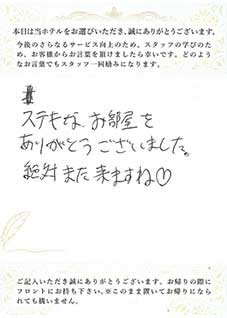 本日は当ホテルをお選びいただき、誠にありがとうございます。
今後のさらなるサービス向上のため、スタッフの学びのため、お客様からお言葉を頂けましたら幸いです。どのようなお言葉でもスタッフ一同励みになります。
ステキな お部屋を
ありがとうございました。
絶対また来ますね♡
ご記入いただき誠にありがとうございます。お帰りの際に
フロントにお持ち下さい。※このまま置いてお帰りになら
れても構いません。